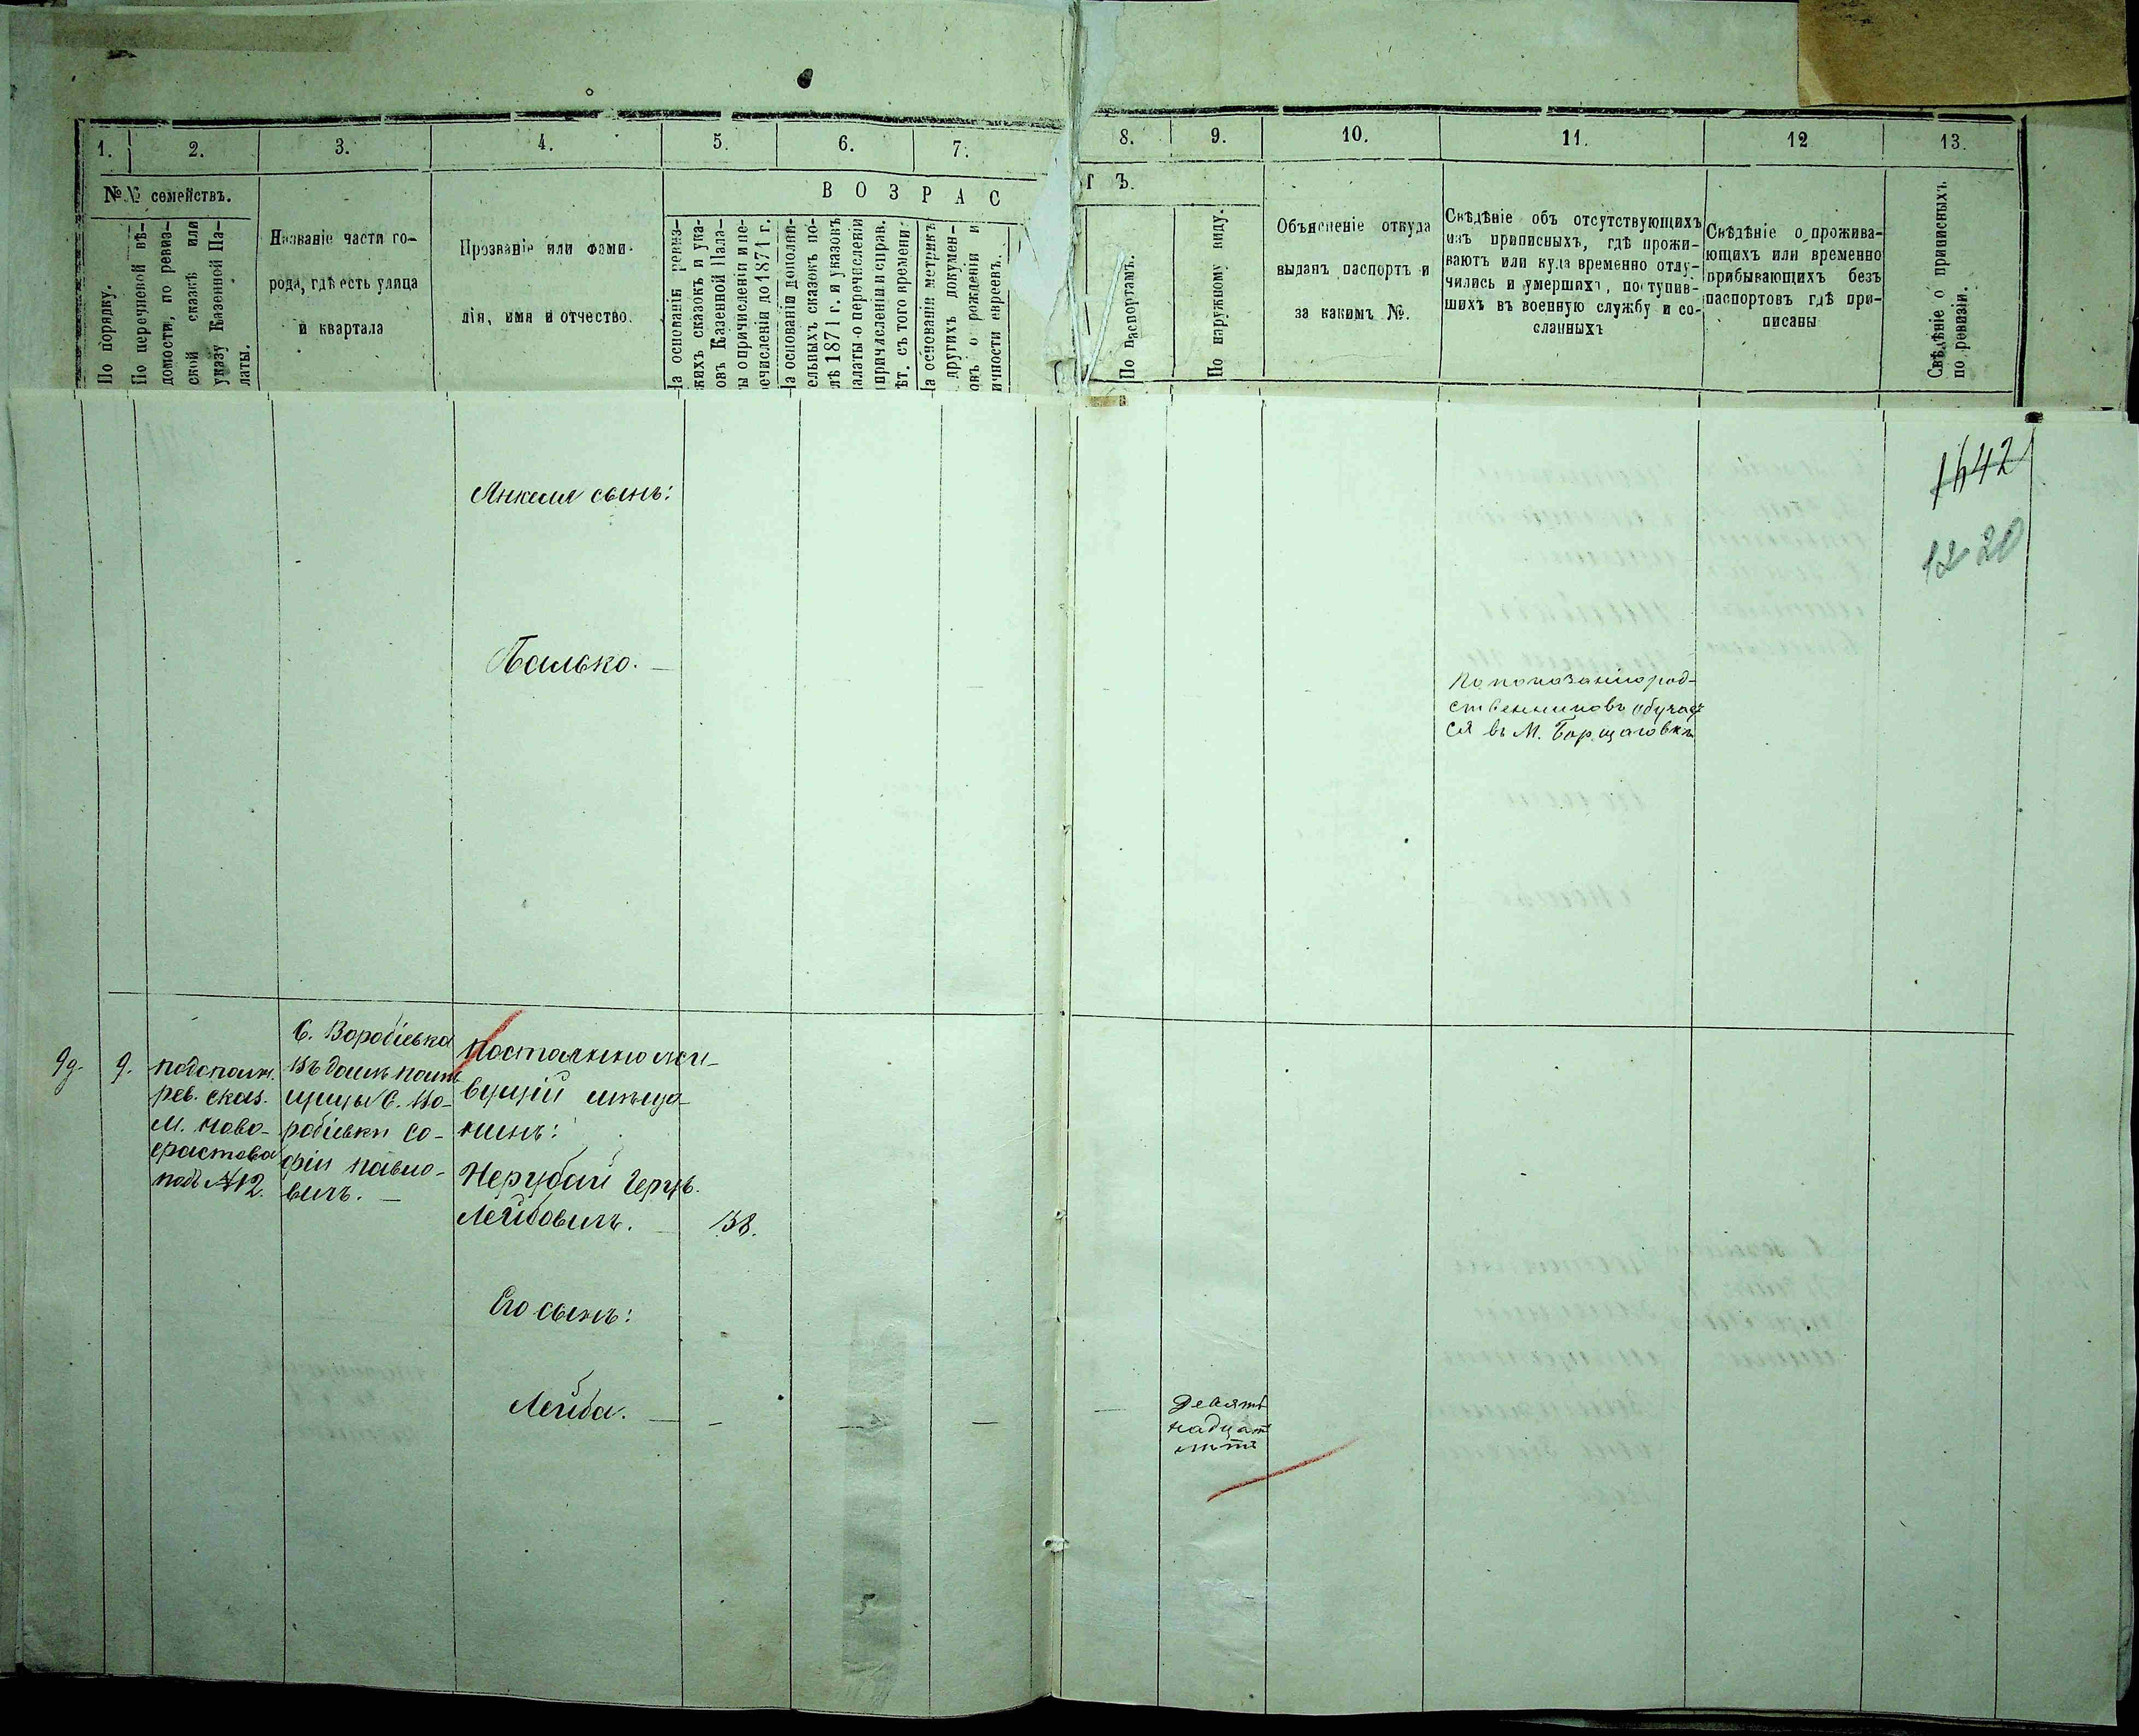 1.
2.
3.
4.
5.
6.
7.
8.
9.
10.
11.
12
13.
№ № семействъ.
По порядку.
По перечневой вѣ-
домости, по ревиз-
ской сказкѣ или
указу Казенной Па-
латы.
Названіе части го-
рода, гдѣ есть улица
и квартала
Прозваніе или фами-
лія, имя и отчество.
ВОЗРАС
ТЪ.
На основаніи ревиз-
скихъ сказокъ и ука-
зовъ Казенной Пала-
ты о причисленіи и пе-
речисленіи до 1871 г.
На основаніи дополни-
тельныхъ сказокъ по-
слѣ 1871 г. и указовъ
палаты о перечисленіи
и причисленіи и справ.
лѣт. съ того времени.
На основаніи метрикъ
и другихъ докумен-
товъ о рожденіи и
личности евреевъ.
По паспортамъ.
По наружному виду.
Объясненіе откуда
выданъ паспортъ и
за какимъ №.
Свѣдѣніе объ отсутствующихъ
изъ приписныхъ, гдѣ прожи-
ваютъ или куда временно отлу-
чились и умершихъ, поступив-
шихъ въ военную службу и со-
сланныхъ
Свѣдѣніе о прожива-
ющихъ или временно
прибывающихъ безъ
паспортовъ гдѣ при-
писаны
Свѣдѣніе о приписныхъ
по ревизіи.
1642
1220
Янкеля сынъ:
Палько.
По показанію род-
ственниковъ обучает
ся въ М. Борщаговкѣ
9.
рев. сказ.
М. Ново-
фастова
подъ №12.
С. Воробіевка
въ домѣ помѣ
щицы С. Во-
робіевки Со-
фіи Павло-
вичъ.
Постоянно жи-
вущій мѣща-
нинъ:
Нерубай Гершъ.
Лейбовичъ.
38.
Его сынъ:
Лейба.
Девять
надцат
лѣтъ